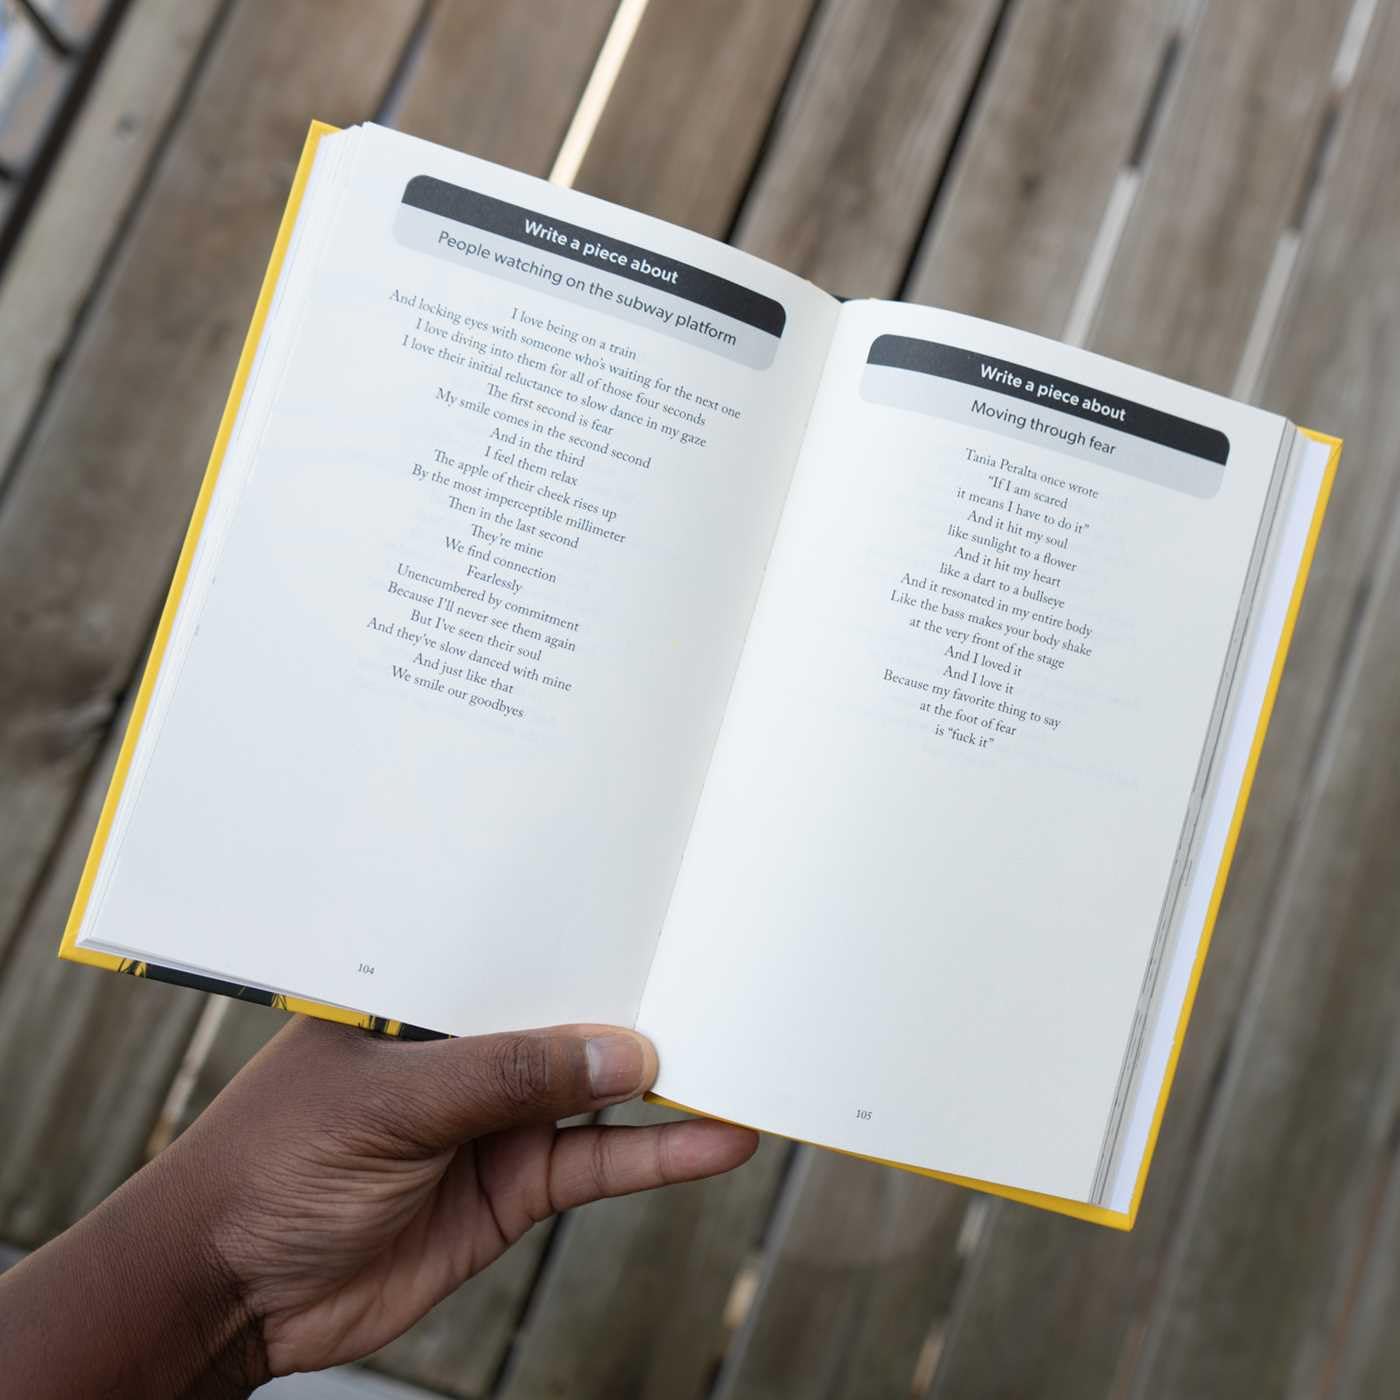 Write a piece about
People watching on the subway platform
I love being on a train
And locking eyes with someone who's waiting for the next one
I love diving into them for all of those four seconds
I love their initial reluctance to slow dance in my gaze
The first second is fear
My smile comes in the second second
And in the third
I feel them relax
The apple of their cheek rises up
By the most imperceptible millimeter
Then in the last second
They're mine
We find connection
Fearlessly
Unencumbered by commitment
Because I'll never see them again
But I've seen their soul
And they've slow danced with mine
And just like that
We smile our goodbyes
104
Write a piece about
Moving through fear
Tania Peralta once wrote
"If I am scared
it means I have to do it"
And it hit my soul
like sunlight to a flower
And it hit my heart
like a dart to a bullseye
And it resonated in my entire body
Like the bass makes your body shake
at the very front of the stage
And I loved it
And I love it
Because my favorite thing to say
at the foot of fear
is "fuck it"
105